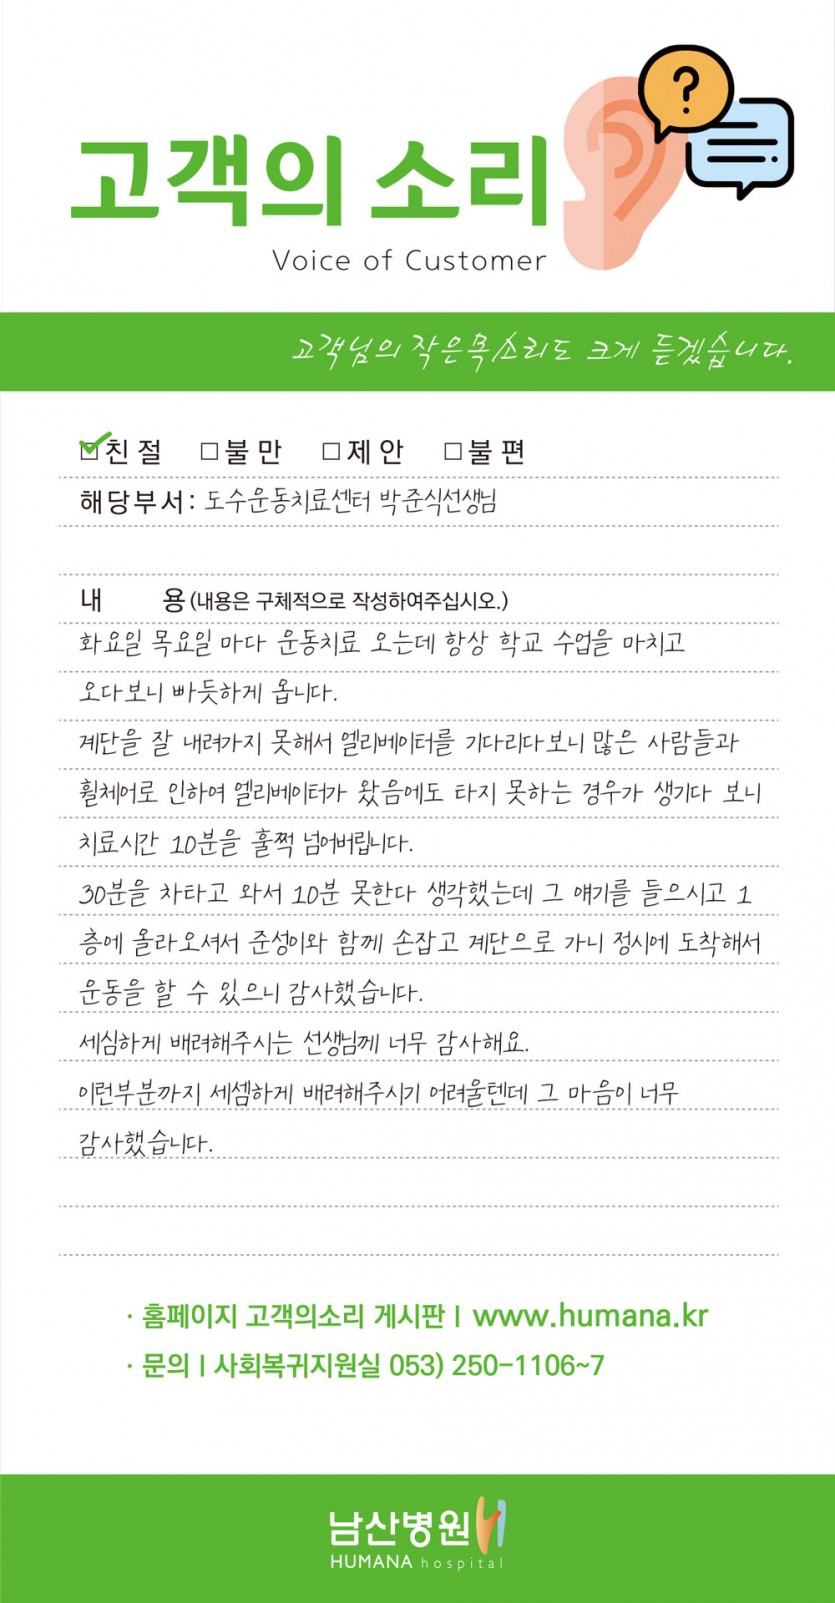 고객의 소리
Voice of Customer
고객님의 작은목소리도 크게 듣겠습니다.
☑친절 □불만 □제안 □불편
해당부서: 도수운동치료센터 박준식선생님
내 용(내용은 구체적으로 작성하여주십시오.)
화요일 목요일 마다 운동치료 오는데 항상 학교 수업을 마치고
오다보니 빠듯하게 옵니다.
계단을 잘 내려가지 못해서 엘리베이터를 기다리다보니 많은 사람들과
휠체어로 인하여 엘리베이터가 왔음에도 타지 못하는 경우가 생기다 보니
치료시간 10분을 훌쩍 넘어버립니다.
30분을 차타고 와서 10분 못한다 생각했는데 그 얘기를 들으시고 1
층에 올라오셔서 준성이와 함께 손잡고 계단으로 가니 정시에 도착해서
운동을 할 수 있으니 감사했습니다.
세심하게 배려해주시는 선생님께 너무 감사해요.
이런부분까지 세셈하게 배려해주시기 어려울텐데 그 마음이 너무
감사했습니다.
· 홈페이지 고객의소리 게시판 | www.humana.kr
· 문의 | 사회복귀지원실 053) 250-1106~7
남산병원
HUMANA hospital